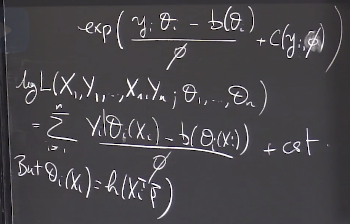 exp( (y_i θ_i − b(θ_i))/φ + c(y_i, φ) )
log L(X_1, Y_1, ..., X_n, Y_n ; θ_1, ..., θ_n)
= Σ_{i=1}^{n} (Y_i θ_i(X_i) − b(θ_i(X_i)))/φ + cst.
But θ_i(X_i) = h(X_i^T β)